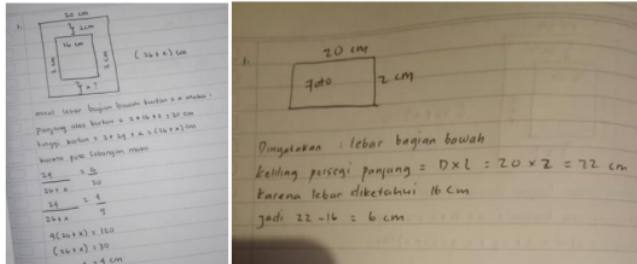 1.
20 cm
2 cm
16 cm
2 cm
2 cm
x ?
(26 + x) cm
misal lebar bagian bawah karton = x maka :
panjang alas karton = 2 + 16 + 2 = 20 cm
tinggi karton = 2 + 24 + x = (26 + x) cm
karena foto sebangun maka
24 = 16
26 + x 20
24 = 4
26 + x 5
4(26 + x) = 120
(26 + x) = 30
= 4 cm
1.
20 cm
Foto
2 cm
Dinyatakan : lebar bagian bawah
Keliling persegi panjang = D x L = 20 x 2 = 22 cm
Karena lebar diketahui 16 cm
Jadi 22 - 16 = 6 cm